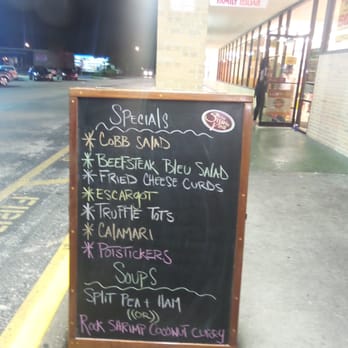 SPECIALS
* COBB SALAD
* BEEFSTEAK BLEU SALAD
* FRIED CHEESE CURDS
* ESCARGOT
* TRUFFLE TOTS
* CALAMARI
* POTSTICKERS
SOUPS
SPLIT PEA + HAM
((OR))
ROCK SHRIMP COCONUT CURRY
FIRE